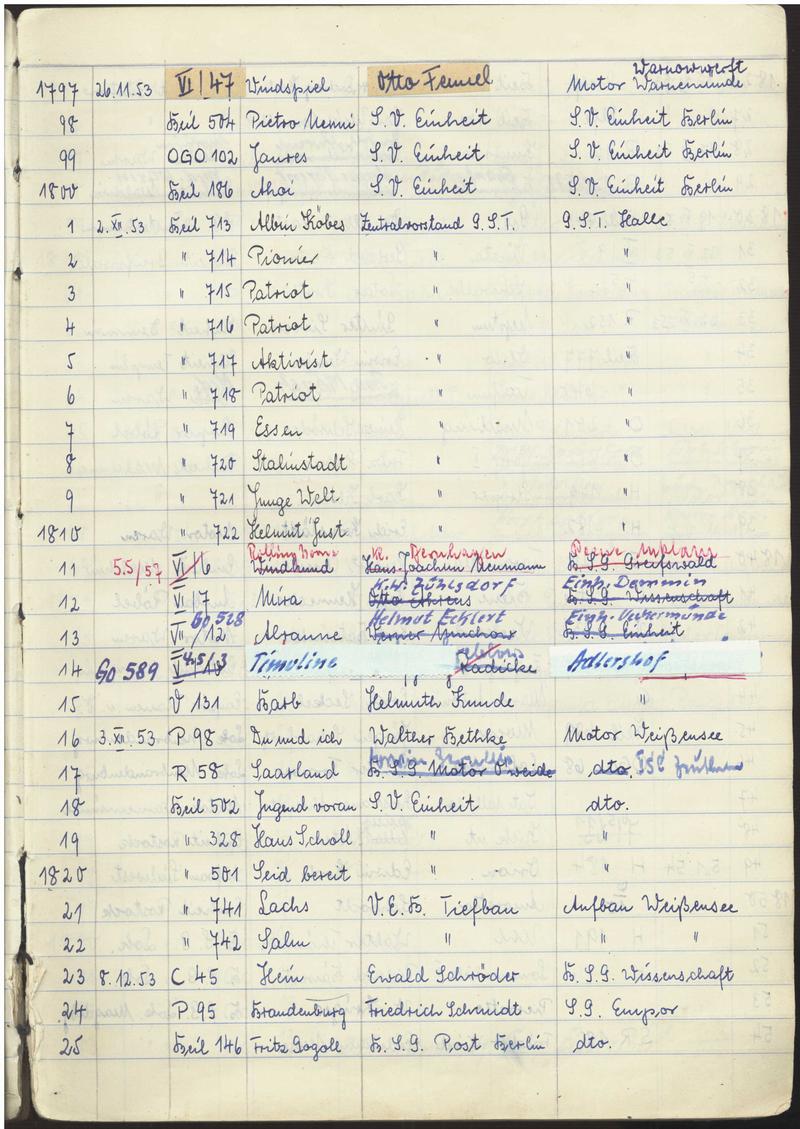 Warnowwerft
1797 26.11.53 VI/47 Windspiel Otto Femel Motor Warnemünde
98 Beil 504 Pietro Nenni S.V. Einheit S.V. Einheit Berlin
99 OGO 102 Jaures S.V. Einheit S.V. Einheit Berlin
1800 Beil 186 Ahoi S.V. Einheit S.V. Einheit Berlin
1 2.XII.53 Beil 713 Albin Köbes Zentralvorstand G.S.T. G.S.T. Halle
2 " 714 Pionier " "
3 " 715 Patriot " "
4 " 716 Patriot " "
5 " 717 Aktivist " "
6 " 718 Patriot " "
7 " 719 Essen " "
8 " 720 Stalinstadt " "
9 " 721 Junge Welt " "
1810 " 722 Helmut Just " "
Rolling Home K. Bernhagen
11 5.5/57 VI/6 Windhund Hans-Joachim Neumann B.S.G. Greifswald
K.W. Zühlsdorf Einh. Demmin
12 VI/7 Mira Otto Ehrens B.S.G. Wissenschaft
Go 528 Helmut Echlert Einh. Ückermünde
13 VII/12 Alraune Werner B.S.G. Einheit
14 Go 589 Timoline Radicke Adlershof
15 V 131 Barb Helmuth Kunde "
16 3.XII.53 P 98 Du und ich Walther Bethke Motor Weißensee
17 R 58 Saarland B.S.G. Motor dto. TSC
18 Beil 502 Jugend voran S.V. Einheit dto.
19 " 328 Hans Scholl " "
1820 " 501 Seid bereit " "
21 " 741 Lachs V.E.B. Tiefbau Aufbau Weißensee
22 " 742 Salm " " "
23 8.12.53 C 45 Hein Ewald Schröder B.S.G. Wissenschaft
24 P 95 Brandenburg Friedrich Schmidt S.G. Empor
25 Beil 146 Fritz Gogoll B.S.G. Post Berlin dto.